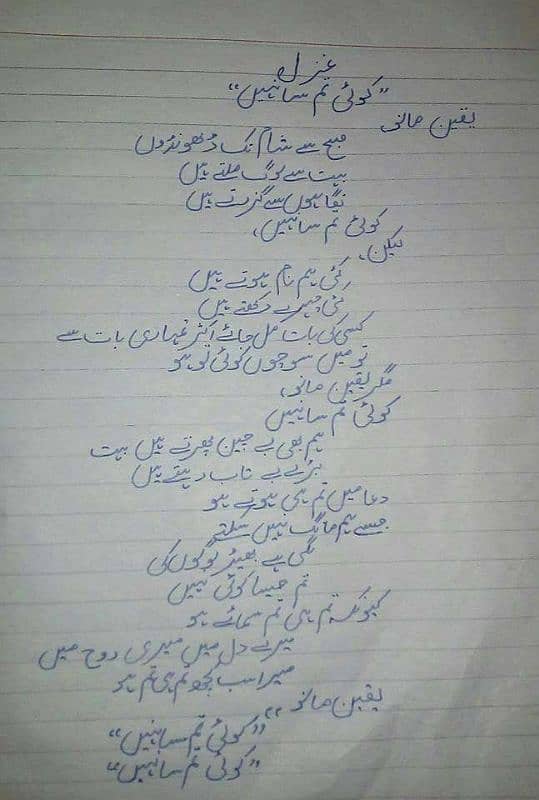 غزل
"کوئی تم سا نہیں"
یقین مانو
صبح سے شام تک ڈھونڈوں
بہت سے لوگ ملتے ہیں
نگاہوں سے گزرتے ہیں
کوئی تم سا نہیں،
لیکن،
کئی ہم نام ہوتے ہیں
کئی چہرے دکھتے ہیں
کسی کی بات مل جائے اکثر تمہاری بات سے
تو میں سوچوں کوئی تو ہو
مگر یقین مانو،
کوئی تم سا نہیں
ہم بھی بے چین پھرتے ہیں بہت
بڑے بے تاب رہتے ہیں
دعا میں تم ہی ہوتے ہو
جسے ہم مانگ نہیں سکتے
لگی ہے بھیڑ لوگوں کی
تم جیسا کوئی نہیں
کیونکہ تم ہی تم سمائے ہو
میرے دل میں میری روح میں
میرا سب کچھ تم ہی تم ہو
یقین مانو،،
"کوئی تم سا نہیں"
"کوئی تم سا نہیں"